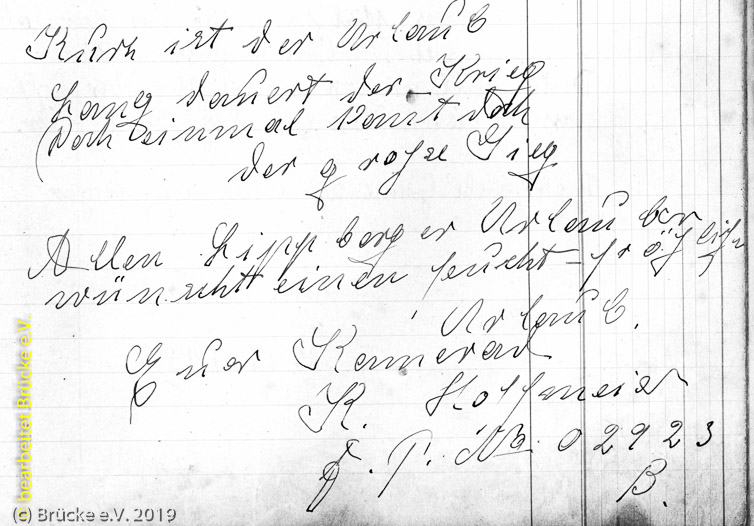 Kurz ist der Urlaub
Lang dauert der Krieg
Doch einmal komt doch
der große Sieg
Allen Lippberger Urlauber
wünscht einen feucht=fröhlichen
Urlaub.
Euer Kamerad
K. Hoffmeier
F. P. No 02923
B.
© bearbeitet Brücke e.V.
(c) Brücke e.V. 2019